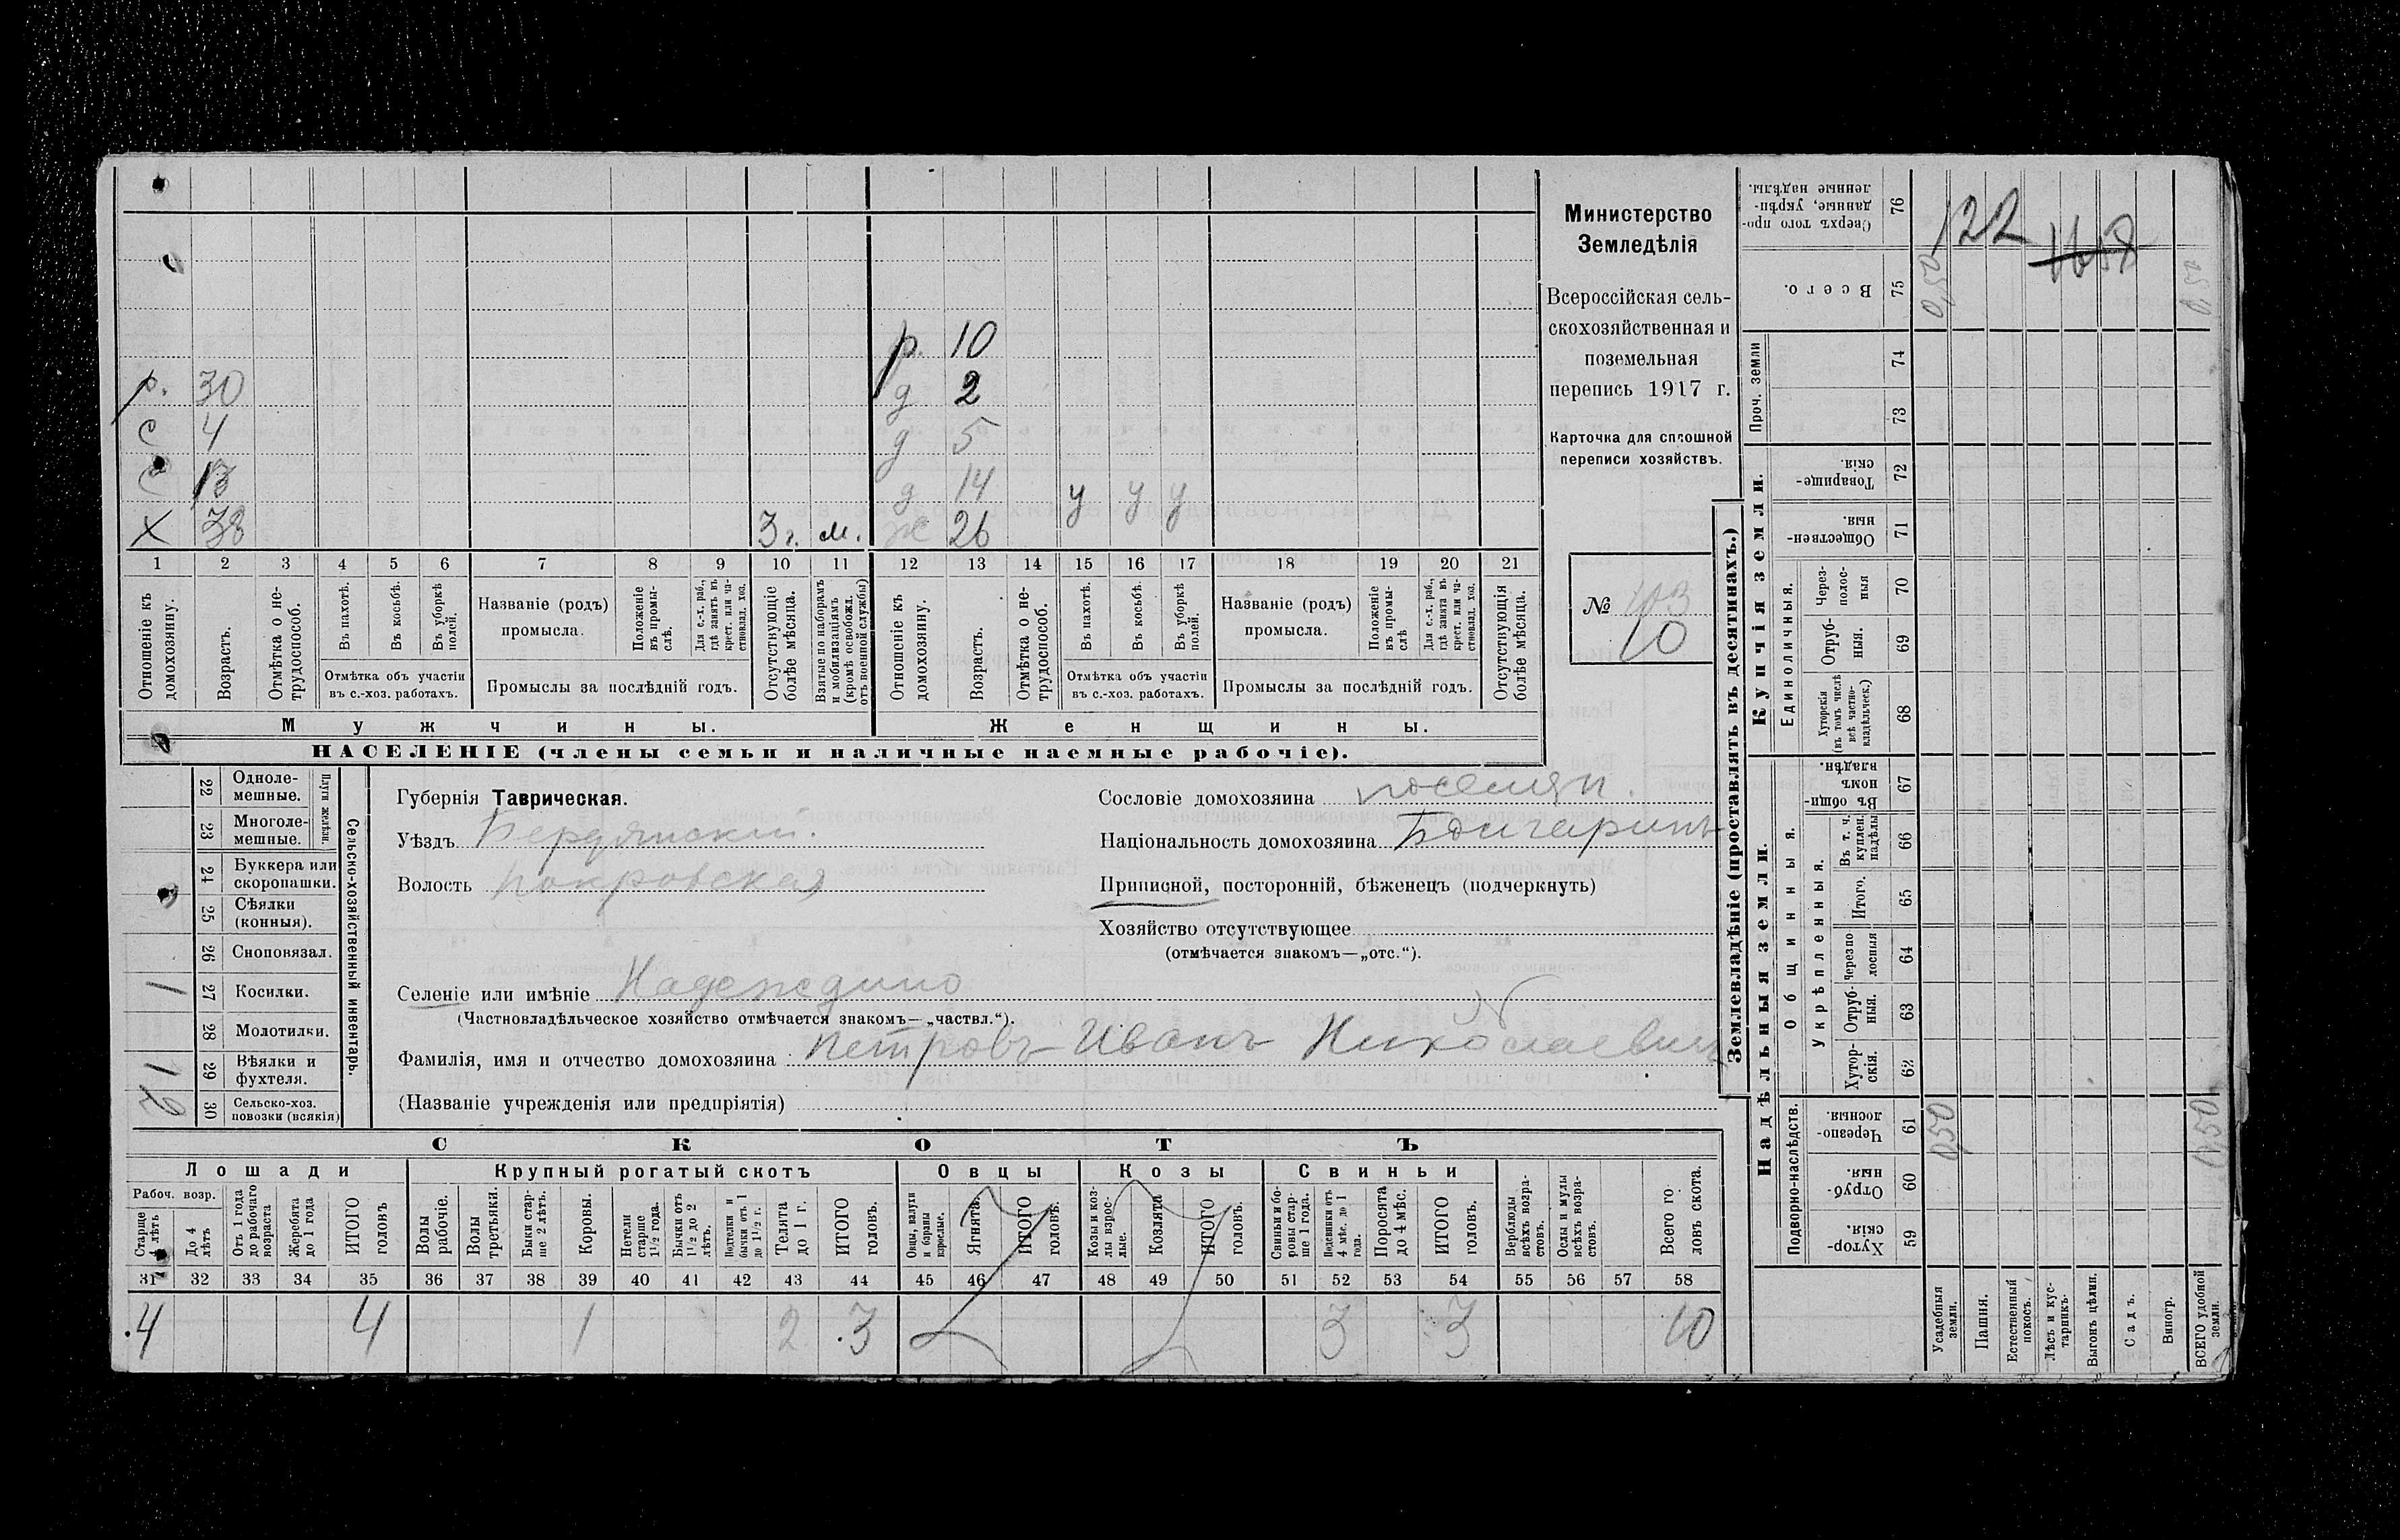 р. 10
р. 30 д 2
с 4 д 5
с 13 д 14 у у у
х 38 3 г. м. ж 26
1 2 3 4 5 6 7 8 9 10 11 12 13 14 15 16 17 18 19 20 21
Отношеніе къ домохозяину.
Возрастъ.
Отмѣтка о не-трудоспособ.
Въ пахотѣ.
Въ косьбѣ.
Въ уборкѣ полей.
Отмѣтка объ участіи
въ с.-хоз. работахъ.
Названіе (родъ)
промысла.
Положеніе въ промы-слѣ.
Для с.-х. раб., гдѣ занятъ въ крест. или ча-стновлад. хоз.
Промыслы за послѣдній годъ.
Отсутствующіе болѣе мѣсяца.
Взятые по наборамъ и мобилизаціямъ (кромѣ освобожд. отъ военной службы)
Отношеніе къ домохозяину.
Возрастъ.
Отмѣтка о не-трудоспособ.
Въ пахотѣ.
Въ косьбѣ.
Въ уборкѣ полей.
Отмѣтка объ участіи
въ с.-хоз. работахъ.
Названіе (родъ)
промысла.
Положеніе въ промы-слѣ
Для с.-х. раб., гдѣ занята въ крест. или ча-стновлад. хоз.
Промыслы за послѣдній годъ.
Отсутствующія болѣе мѣсяца.
Мужчины. Женщины.
НАСЕЛЕНІЕ (члены семьи и наличные наемные рабочіе).
Министерство
Земледѣлія
Всероссійская сель-
скохозяйственная и
поземельная
перепись 1917 г.
Карточка для сплошной
переписи хозяйствъ.
№ 103
10
22 Одноле-мешные.
23 Многоле-мешные.
Плуги желѣзн.
24 Буккера или скоропашки.
25 Сѣялки (конныя).
26 Сноповязал.
27 Косилки. 1
28 Молотилки.
29 Вѣялки и фухтеля. 1
30 Сельско-хоз. повозки (всякія) 2
Сельско-хозяйственный инвентарь.
Губернія Таврическая.
Уѣздъ Бердянский.
Волость Покровская
Селеніе или имѣніе Надеждино
(Частновладѣльческое хозяйство отмѣчается знакомъ—„частвл.“).
Фамилія, имя и отчество домохозяина Петровъ Иванъ Николаевич
(Названіе учрежденія или предпріятія)
Сословіе домохозяина поселян.
Національность домохозяина Болгаринъ
Приписной, посторонній, бѣженецъ (подчеркнуть)
Хозяйство отсутствующее
(отмѣчается знакомъ—„отс.“).
СКОТЪ
Лошади Крупный рогатый скотъ Овцы Козы Свиньи
Рабоч. возр.
Старше 4 лѣтъ
До 4 лѣтъ
Отъ 1 года до рабочаго возраста
Жеребята до 1 года
ИТОГО головъ
Волы рабочіе.
Волы третьяки.
Быки стар-ше 2 лѣтъ.
Коровы.
Нетели старше 1½ года.
Бычки отъ 1½ до 2 лѣтъ.
Подтелки и бычки отъ 1 до 1½ г.
Телята до 1 г.
ИТОГО головъ.
Овцы, валухи и бараны взрослые.
Ягнята.
ИТОГО головъ.
Козы и коз-лы взрос-лые.
Козлята
ИТОГО головъ.
Свиньи и бо-ровы стар-ше 1 года.
Подсвинки отъ 4 мѣс. до 1 года.
Поросята до 4 мѣс.
ИТОГО головъ.
Верблюды всѣхъ возра-стовъ.
Ослы и мулы всѣхъ возра-стовъ.
Всего го-ловъ скота.
31 32 33 34 35 36 37 38 39 40 41 42 43 44 45 46 47 48 49 50 51 52 53 54 55 56 57 58
4 4 1 2 3 3 3 10
Землевладѣніе (проставлять въ десятинахъ.)
Надѣльныя земли. Купчія земли.
Подворно-наслѣдств.
Общинныя.
Укрѣпленныя.
Единоличныя.
Проч. земли
Сверхъ того про-данные, укрѣп-ленные надѣлы. 76
Всего. 75
74
73
Товарище-скія. 72
Обществен-ныя. 71
Через-полос-ныя 70
Отруб-ныя. 69
Хуторскія (въ томъ числѣ всѣ частно-владѣльческ.) 68
Въ общи-номъ владѣн. 67
Въ т. ч. куплен. надѣлы 66
Итого. 65
Черезпо-лосныя 64
Отруб-ныя. 63
Хутор-скія. 62
Черезпо-лосныя. 61
Отруб-ныя. 60
Хутор-скія. 59
Усадебныя земли.
Пашня.
Естественный покосъ.
Лѣсъ и кус-тарникъ.
Выгонъ цѣлин.
Садъ.
Виногр.
ВСЕГО удобной земли.
122
0,50
0,50
0,50
0,50